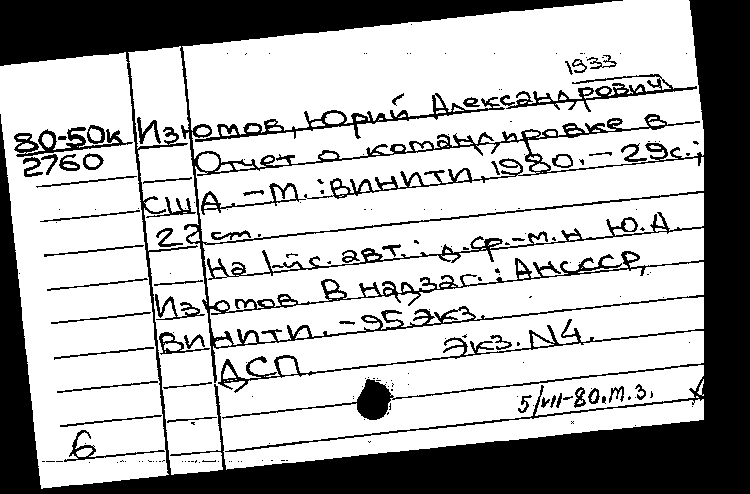 1933
80-50к Изютов, Юрий Александрович
2760 Отчет о командировке в
США. – М. : ВИНИТИ, 1980. – 29с.;
22 ст.
На 1-й с. авт.: д.ф.-м.н Ю.А.
Изютов. В надзаг.: АНСССР,
ВИНИТИ. – 95 экз.
ДСП. Экз. N4.
5/VII-80. т.з.
6